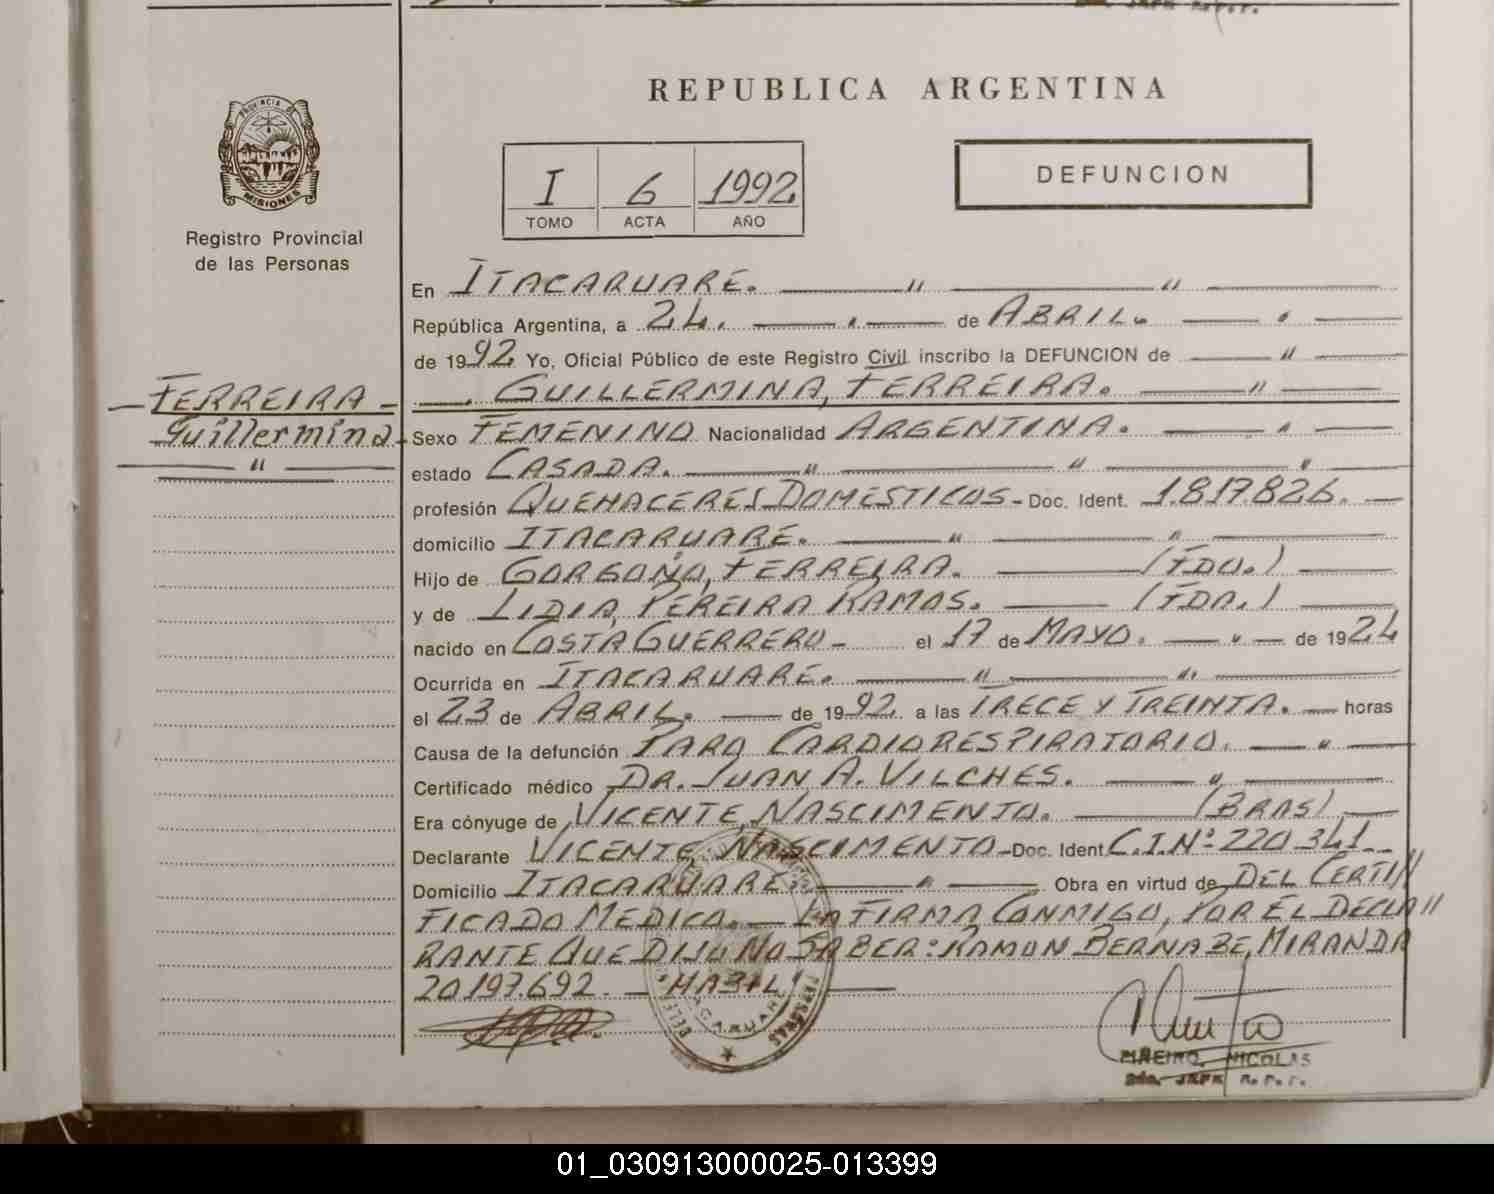 REPUBLICA ARGENTINA
PROVINCIA DE
MISIONES
Registro Provincial
de las Personas
I 6 1992
TOMO ACTA AÑO
DEFUNCION
En ITACARUARÉ. " "
República Argentina, a 24. " de ABRIL. "
de 1992 Yo, Oficial Público de este Registro Civil inscribo la DEFUNCION de "
FERREIRA
GUILLERMINA, FERREIRA. "
Guillermina
"
Sexo FEMENINO Nacionalidad ARGENTINA. "
estado CASADA. " " "
profesión QUEHACERES DOMESTICOS - Doc. Ident. 1.817.826.
domicilio ITACARUARÉ. " "
Hijo de GORGOÑO, FERREIRA. (FDO.)
y de LIDIA, PEREIRA RAMOS. (FDA.)
nacido en COSTA GUERRERO - el 17 de MAYO. " de 1924
Ocurrida en ITACARUARÉ. " "
el 23 de ABRIL. de 1992. a las TRECE Y TREINTA. horas
Causa de la defunción PARO CARDIORESPIRATORIO. "
Certificado médico DR. JUAN A. VILCHES. "
Era cónyuge de VICENTE, NASCIMENTO. (BRAS)
Declarante VICENTE, NASCIMENTO - Doc. Ident. C.I.Nº 220.341
Domicilio ITACARUARÉ. " Obra en virtud de DEL CERTI//
FICADO MEDICO. LA FIRMA CONMIGO, POR EL DECLA//
RANTE QUE DIJO NO SABER: RAMON BERNABE, MIRANDA
20.197.692. - "HABIL"
PIÑEIRO, NICOLAS
2do. JEFE R.P.P.
01_030913000025-013399